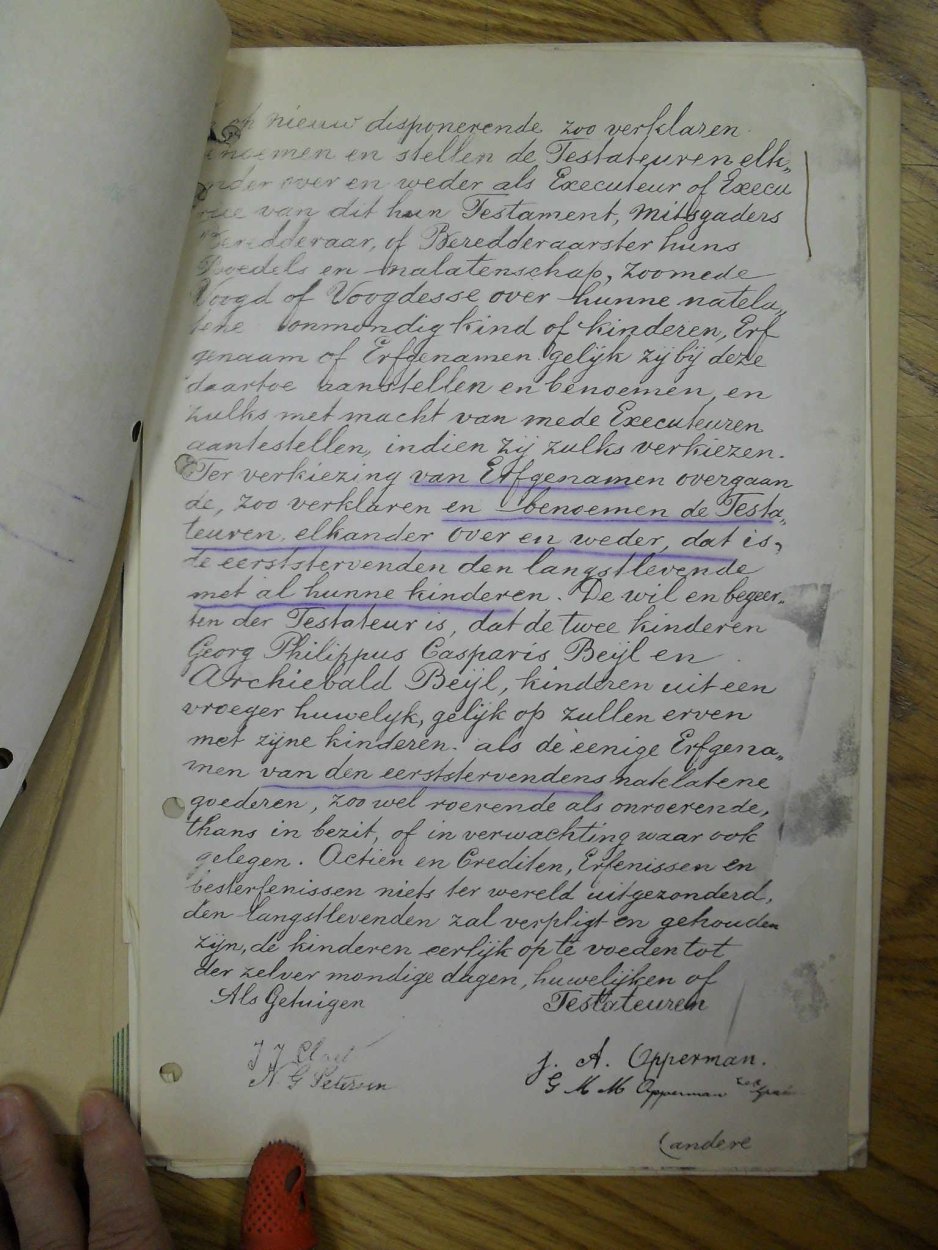 nieuw disponerende zoo verklaren
en stellen de Testateuren elk„
over en weder als Executeur of Execu
van dit hun Testament, Mitsgaders
Beredderaar, of Beredderaarster huns
Boedels en malatenschap, zoomede
Voogd of Voogdesse over hunne natela„
tene onmondig kind of kinderen, Erf
genaam of Erfgenamen gelijk zij bij deze
daartoe aanstellen en benoemen, en
zulks met macht van mede Executeuren
aantestellen, indien zij zulks verkiezen.
Ter verkiezing van Erfgenamen overgaan
de, zoo verklaren en benoemen de Testa„
teuren, elkander over en weder, dat is,
de eerststervenden den langstlevende
met al hunne kinderen. De wil en begeer„
ten der Testateur is, dat de twee kinderen
Georg Philippus Casparis Beijl en
Archiebald Beijl, kinderen uit een
vroeger huwelyk, gelijk op zullen erven
met zijne kinderen. als de eenige Erfgena„
men van den eerststervendens natelatene
goederen, zoo wel roerende als onroerende,
thans in bezit, of in verwachting waar ook
gelegen. Actien en Crediten, Erfenissen en
besterfenissen niets ter wereld uitgezonderd,
den langstlevenden zal verpligt en gehouden
zijn, de kinderen eerlijk op te voeden tot
der zelver mondige dagen, huwelijken of
Als Getuigen Testateuren
J J J. A. Opperman.
N G G M M Opperman
(andere